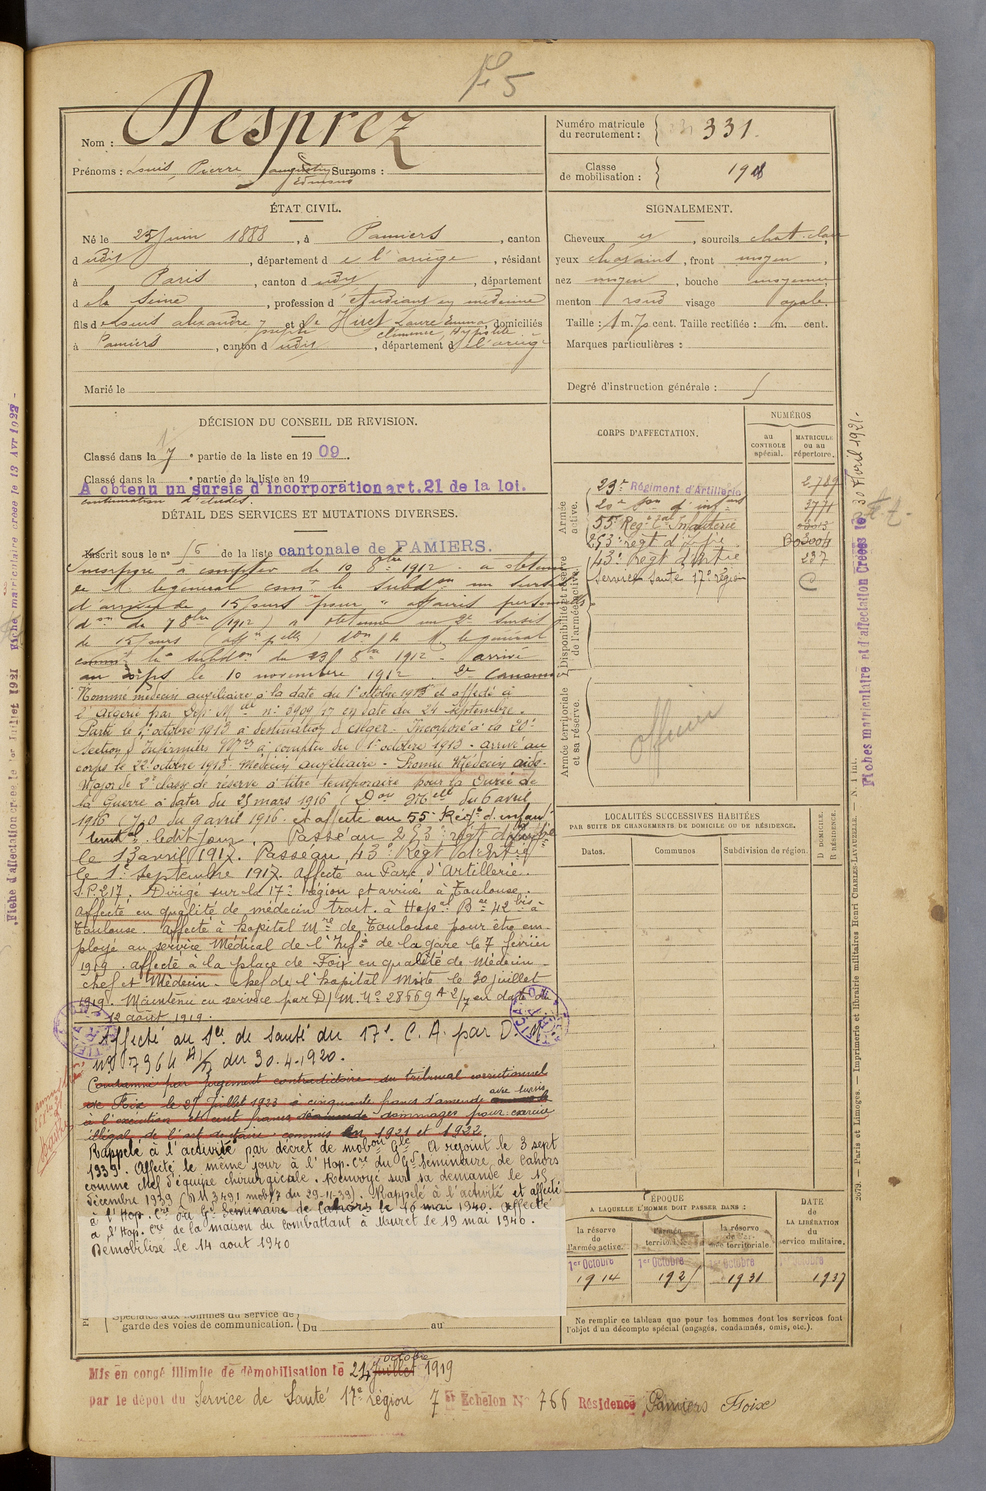 F 5
Nom : Desprez
Prénoms : Louis Pierre Augustin Surnoms :
Edmond
Numéro matricule
du recrutement : 331.
Classe
de mobilisation : 1908
ÉTAT CIVIL.
Né le 25 Juin 1888, à Pamiers, canton
dudit, département de l'ariège, résidant
à Paris, canton dudit, département
de la Seine, profession d'étudiant en médecine
fils de Louis alexandre Joseph et de Huct Laure Emma, domiciliés
Clémence, Hypolite
à Pamiers, canton dudit, département de l'ariège
Marié le
SIGNALEMENT.
Cheveux et, sourcils chat. clair,
yeux chatains, front moyen,
nez moyen, bouche moyenne
menton rond visage ovale.
Taille : 1 m. 70 cent. Taille rectifiée : m. cent.
Marques particulières :
Degré d'instruction générale : 5
DÉCISION DU CONSEIL DE REVISION.
Classé dans la 7e partie de la liste en 1909.
Classé dans la e partie de la liste en 19
A obtenu un sursis d'incorporation art. 21 de la loi.
continuation d'études.
DÉTAIL DES SERVICES ET MUTATIONS DIVERSES.
Inscrit sous le no 56 de la liste cantonale de PAMIERS.
Incorporé à compter du 10 8bre 1912 - a obtenu
de M. le général Comt la Subdon un sursis
d'arrivée de 15 jours pour "affaires personnelles"
(don du 7 8bre 1912) a obtenu un 2e sursis
de 15 jours aff. pelles don de M. le général
commt la subdon du 23 8bre 1912 - arrivé
au corps le 10 novembre 1912 2e Canonnier
Nommé médecin auxiliaire à la date du 1er octobre 1913 et affecté à
l'Algérie par Dép. Mlle no 3909 17 en date du 24 Septembre.
Parti le octobre 1913 à destination d'Alger. Incorporé à la 20e
Section d'Infirmiers Mres à compter du 1er octobre 1913 - arrivé au
corps le 22 octobre 1913. Médecin Auxiliaire - Promu Médecin aide-
Major de 2e classe de réserve à titre temporaire pour la durée de
la Guerre à dater du 25 mars 1916 (Don 976 elle du 6 avril
1916 (J.O du 9 avril 1916. et affecté au 55e Regt d'infant
ledit jour. Passé au 253e regt d'infie
le 13 avril 1917. Passé au 43e Regt d'Intie
le 1er septembre 1917. Affecté au Parc d'Artillerie.
S.P. 217. Dirigé sur la 17e région et arrivé à Toulouse.
Affecté en qualité de médecin trait. à Hopal Bre 42 bis à
Toulouse. Affecté à hopital Mre de Toulouse pour être em-
ployé au service Médical de l'Infie de la gare le 7 février
1919. affecté à la place de Foix en qualité de Médecin-
chef et Médecin-chef de l'hopital Mixte le 30 juillet
1919. Maintenu en service par D/M. No 28669 A 2/7 en date du
12 août 1919.
Affecté au Sce de Santé du 17e C.A. par D.M.
No 07964 2/7 du 30.4.1920.
Condamné par jugement contradictoire du tribunal correctionnel
de Foix le 27 juillet 1923 à cinquante francs d'amende avec sursis
à l'exécution et cent francs d'amende dommages pour exercice
illégale de l'art dentaire commis en 1921 et 1922.
Rappelé à l'activité par décret de mobon Gle. A rejoint le 3 sept
1939. Affecté le même jour à l'Hop. Cre du Gd Séminaire de Cahors
comme chef d'équipe chirurgicale. Renvoyé sur sa demande le 15
décembre 1939 (D.M 3491 mob/7 du 29-11-39). Rappelé à l'activité et affecté
à l'Hop. Cre du Gd Séminaire de Cahors le 16 mai 1940. Affecté
à l'Hop. Cre de la maison du combattant à Muret le 19 mai 1940.
Démobilisé le 14 aout 1940
Spéciales aux hommes du service de
garde des voies de communication. { Du au
CORPS D'AFFECTATION.
NUMÉROS
AU CONTROLE spécial.
MATRICULE OU AU répertoire.
Armée active.
Disponibilité et réserve de l'armée active.
Armée territoriale et sa réserve.
23e Régiment d'Artillerie
20e Son d'infres
55e Regt d'Infanterie
253e regt d'infie
43e Regt d'Intie
287
Service Santé 17e région
C
officier
LOCALITÉS SUCCESSIVES HABITÉES
PAR SUITE DE CHANGEMENTS DE DOMICILE OU DE RÉSIDENCE.
Dates.
Communes
Subdivision de région.
D DOMICILE.
R RÉSIDENCE.
ÉPOQUE
A LAQUELLE L'HOMME DOIT PASSER DANS :
la réserve de l'armée active.
l'armée territoriale.
la réserve de l'armée territoriale.
DATE DE LA LIBÉRATION du service militaire.
1er Octobre 1914
1er Octobre 1925
1er Octobre 1931
1er Octobre 1937
Ne remplir ce tableau que pour les hommes dont les services font
l'objet d'un décompte spécial (engagés, condamnés, omis, etc.).
Mis en congé illimité de démobilisation le 24 Juillet octobre 1919
par le dépôt du Service de Santé 17e région 7e Echelon No 766 Résidence Pamiers Foix
Fiche d'affectation créée le 1er Juillet 1921 Fiche matriculaire créée le 13 Avr 1922
Fiches matriculaire et d'affectation Créées le 30 Avril 1921.
2079. — Paris et Limoges. — Imprimerie et librairie militaires Henri CHARLES-LAVAUZELLE. — N. 1 int.